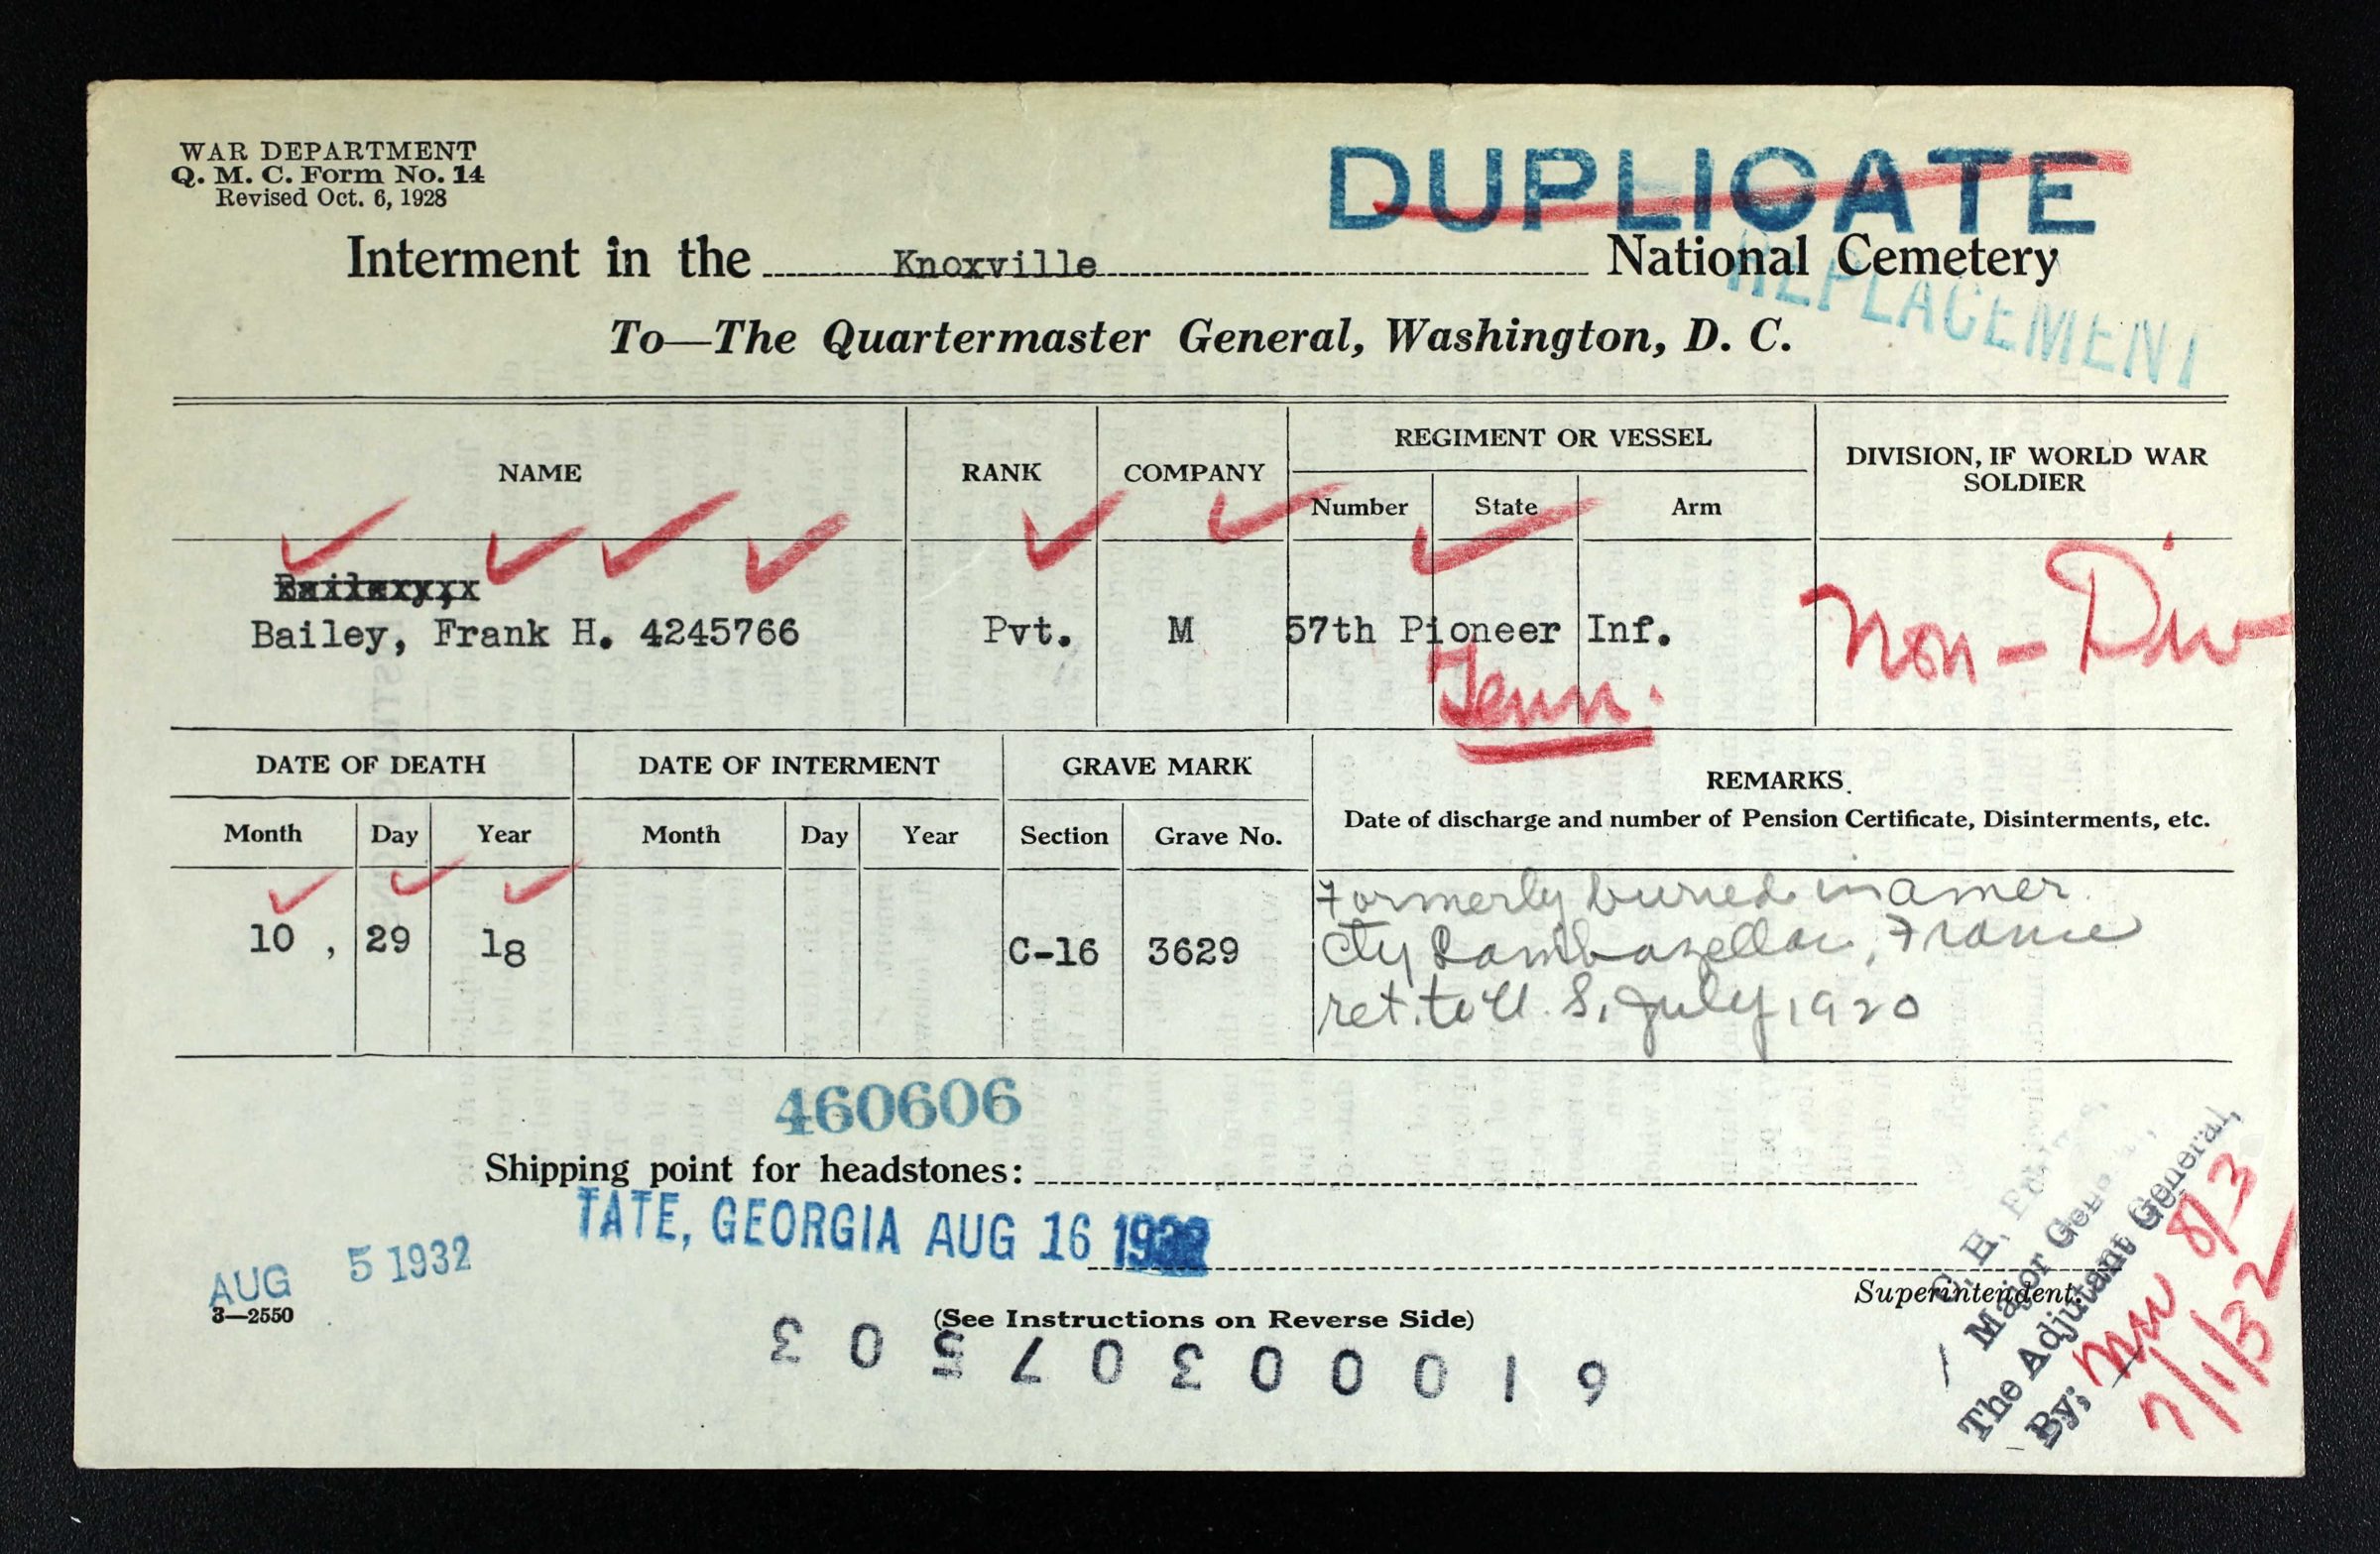 WAR DEPARTMENT
Q. M. C. Form No. 14
Revised Oct. 6, 1928
DUPLICATE
Interment in the Knoxville National Cemetery
REPLACEMENT
To—The Quartermaster General, Washington, D. C.
NAME
RANK
COMPANY
REGIMENT OR VESSEL
Number State Arm
DIVISION, IF WORLD WAR
SOLDIER
Bailey, Frank H. 4245766 Pvt. M 57th Pioneer Inf.
Non-Div
Tenn.
DATE OF DEATH DATE OF INTERMENT GRAVE MARK
REMARKS
Date of discharge and number of Pension Certificate, Disinterments, etc.
Month Day Year Month Day Year Section Grave No.
10, 29 18 C-16 3629
Formerly buried in Amer
Cty Lambazellec, France
ret. to U. S. July 1920
460606
Shipping point for headstones:
TATE, GEORGIA AUG 16 1932
AUG 5 1932
3—2550
Superintendent.
(See Instructions on Reverse Side)
61000307503
C. H.
Major General,
The Adjutant General,
By: 8/3
7/1/32